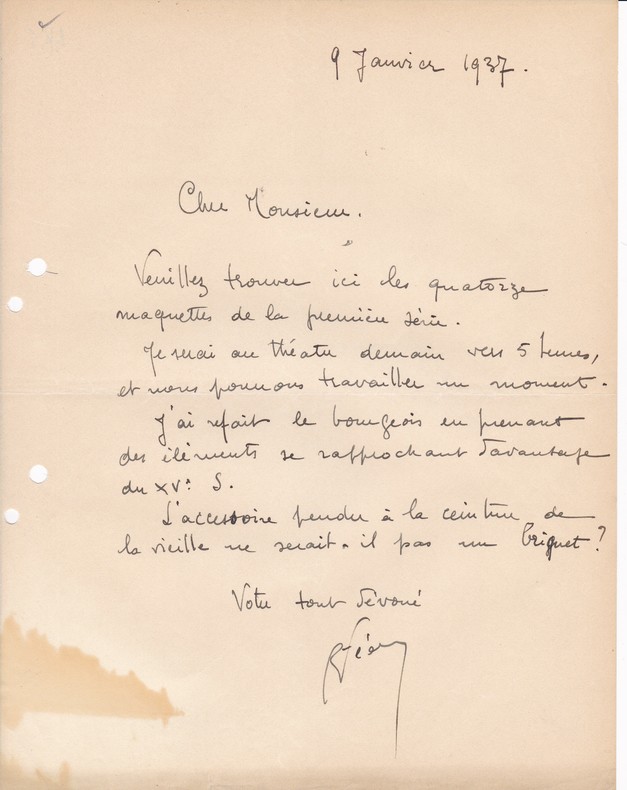 9 Janvier 1937.
Cher Monsieur.
Veuillez trouver ici les quatorze
maquettes de la première série.
Je serai au théatre demain vers 5 heures,
et nous pourrons travailler un moment.
J'ai refait le bourgeois en prenant
des éléments se rapprochant d'avantage
du XVe S.
L'accessoire pendu à la ceinture de
la vieille ne serait-il pas un briquet?
Votre tout dévoué